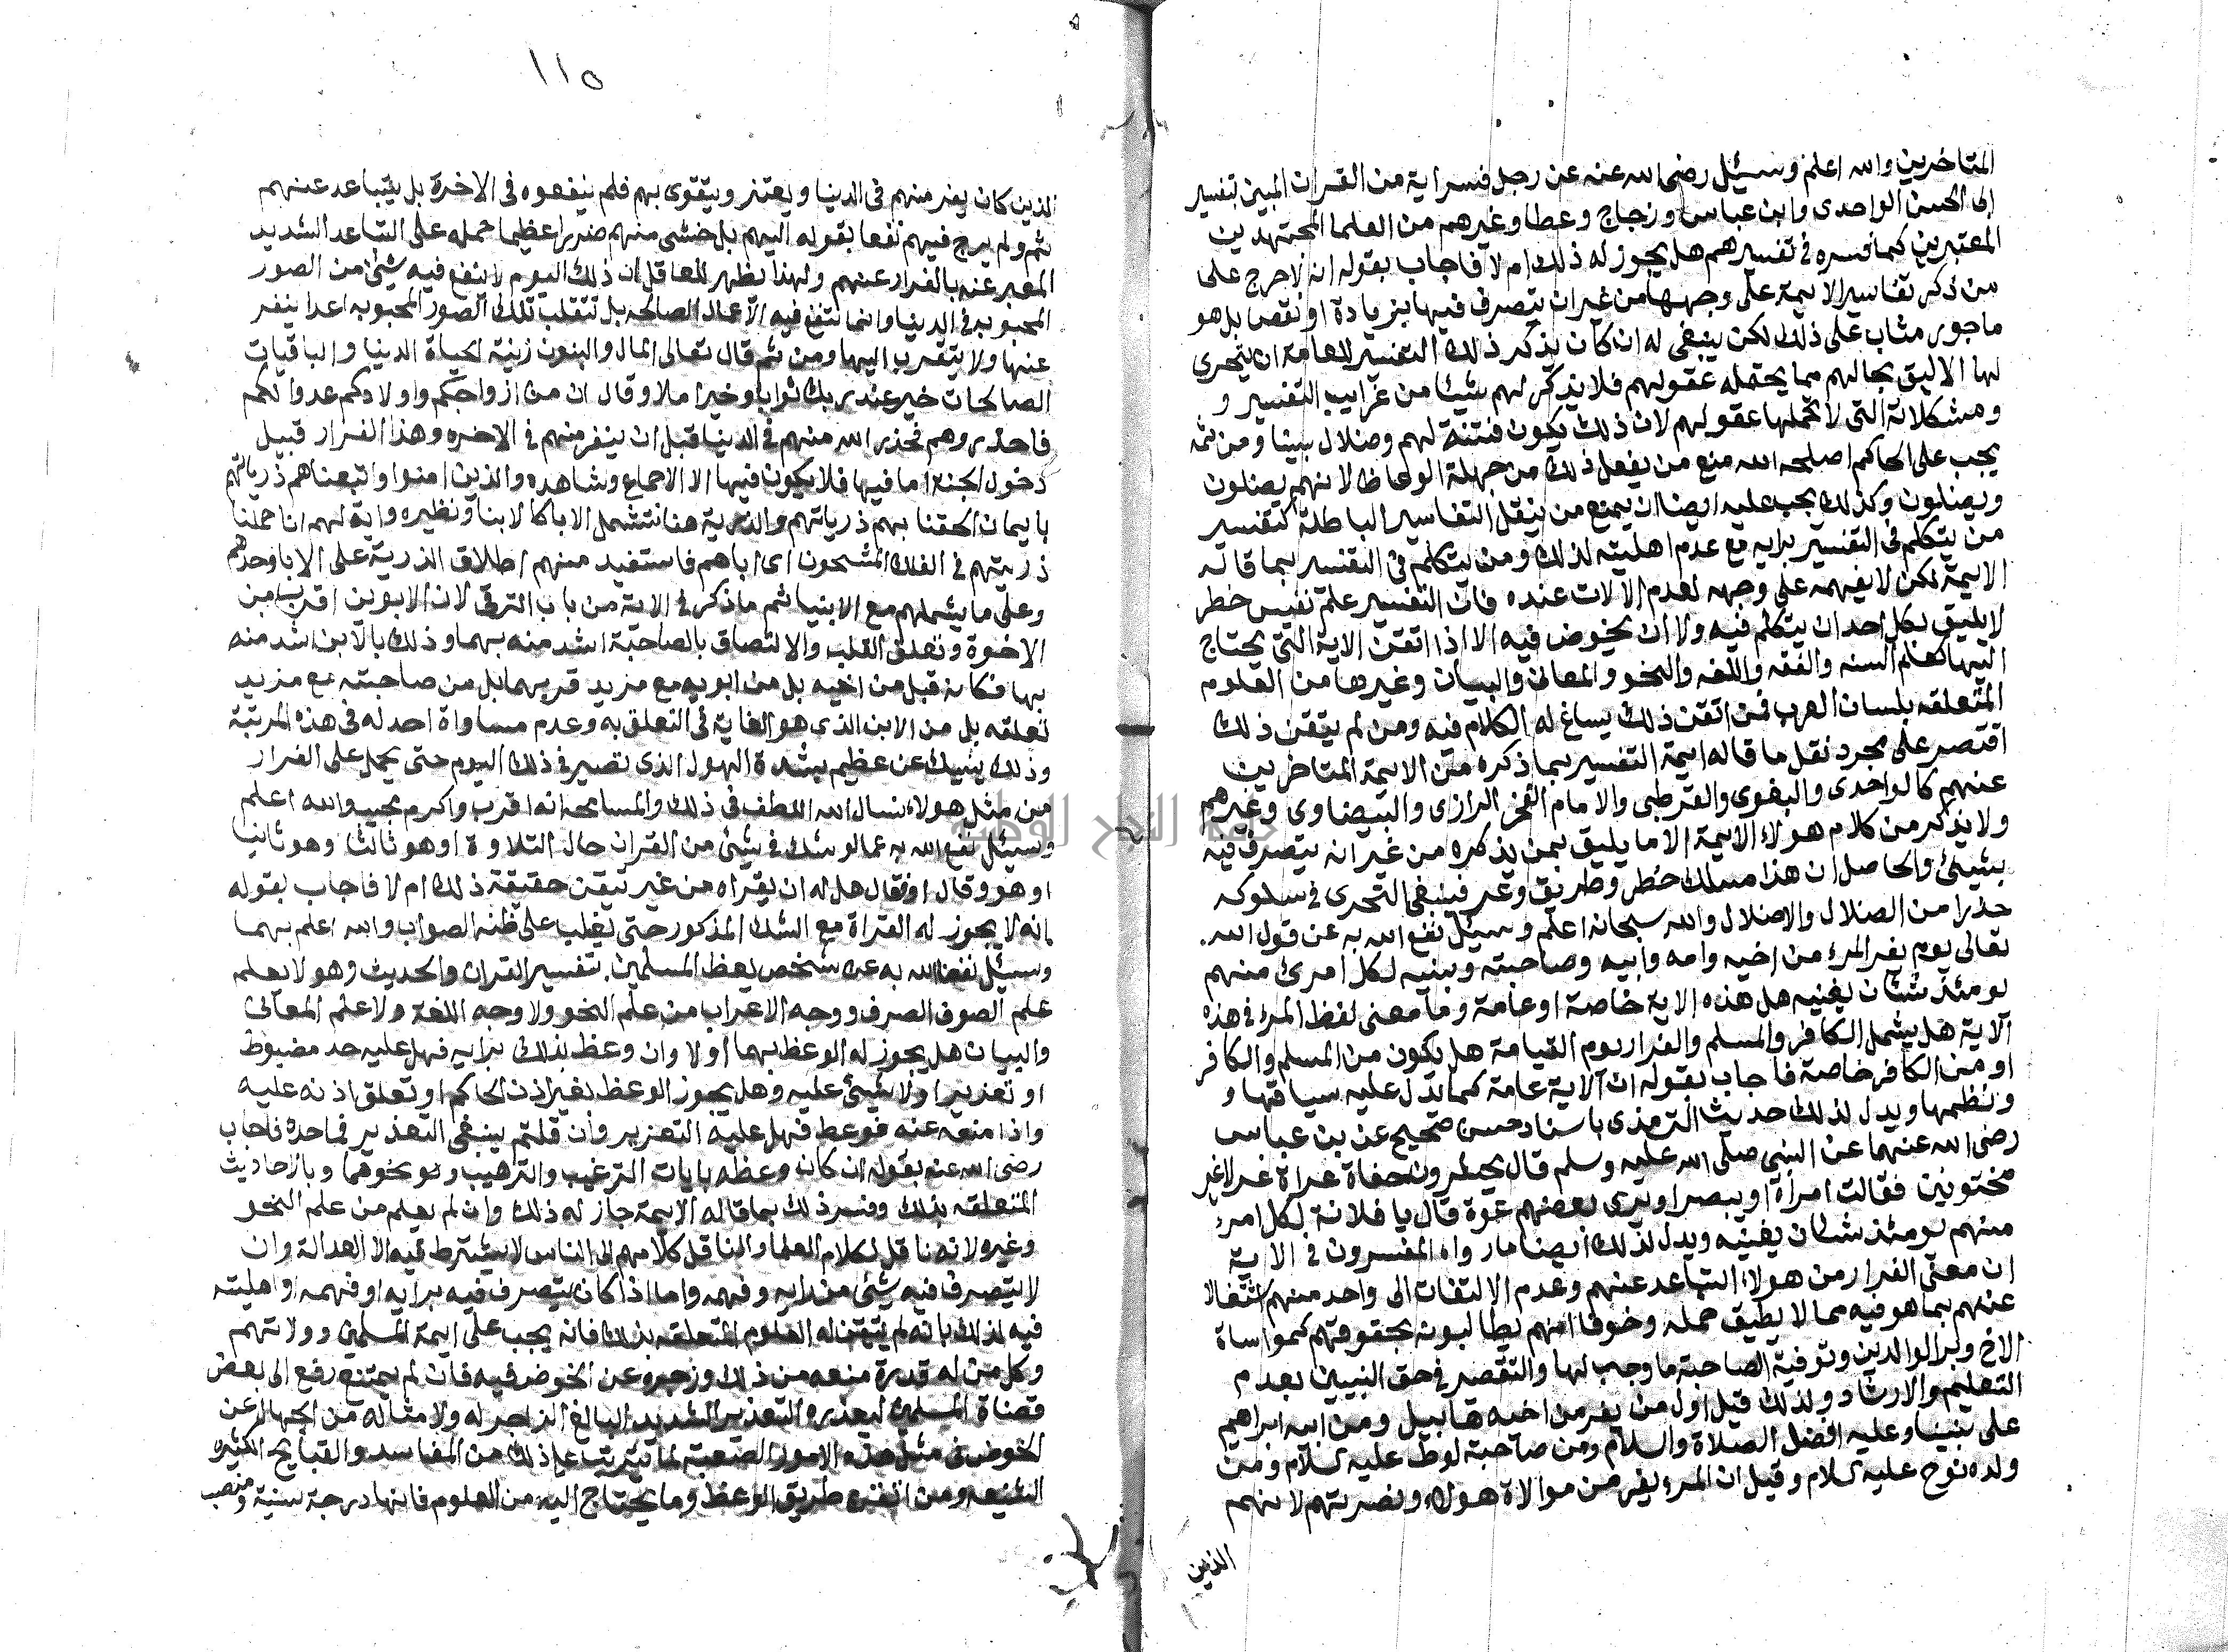 المتاخرين والله اعلم وسئيل رضى الله عنه عن رجل فسر اية من القران المبين تفسير
ابى الحسن الواحدى وابن عباس وزجاج وعطا وغيرهم من العلما المجتهدين
المعتبرين كما فسره فى تفسيرهم هل يجوز له ذلك ام لا فاجاب بقوله انه لا حرج على
من ذكر تفاسير الايمة على وجهها من غير ان يتصرف فيها بزيادة او نقص بل هو
ماجور مثاب على ذلك لكن ينبغى له ان كان يذكر ذلك التفسير للعامة ان يتحرى
لها الاليق بحالهم مما يحتمله عقولهم فلا يذكر لهم شيئا من غرايب التفسير و
ومشكلاته التى لا تحملها عقولهم لان ذلك يكون فتنة لهم وضلال بينا ومن ثمه
يجب على الحاكم اصلحه الله منع من يفعل ذلك من جهلة الوعاظ لانهم يضلون
ويضلون وكذلك يجب عليه ايضا ان يمنع من ينقل التفاسير الباطلة كتفسير
من يتكلم فى التفسير برايه مع عدم اهليته لذلك ومن يتكلم فى التفسير بما قاله
الايمة لكن لا يفهمه على وجهه لعدم الالات عنده فان التفسير علم نفيس خطر
لا يليق بكل احد ان يتكلم فيه ولا ان يخوض فيه الا اذا اتقن الالة التى يحتاج
اليها كعلم السنه والفقه واللغه والنحو والمعانى والبيان وغيرها من العلوم
المتعلقه بلسان العرب فمن اتقن ذلك يساغ له الكلام فيه ومن لم يتقن ذلك
اقتصر على مجرد نقل ما قاله ايمة التفسير بما ذكره من الايمة المتاخرين
عنهم كالواحدى والبغوى والقرطبى والامام الفخر الرازى والبيضاوى وغيرهم
ولا يذكر من كلام هولاء الايمة الا ما يليق بمن يذكره من غير انه يتصرف فيه
بشيئ والحاصل ان هذا مسلك خطر وطريق وعر فينبغى التحرى فى سلوكه
حذرا من الضلال والاضلال والله سبحانه اعلم وسيئل نفع الله به عن قول الله
تعالى يوم يفر المرء من اخيه وامه وابيه وصاحبته وبنيه لكل امرئ منهم
يومئذ شئان يغنيه هل هذه الاية خاصة او عامة وما معنى لفظ المرء فى هذه
الاية هل يشمل الكافر والمسلم والفرار يوم القيامة هل يكون من المسلم والكافر
او من الكافر خاصة فاجاب بقوله ان الاية عامة كما يدل عليه سياقها و
ونظمها ويدل لذلك حديث الترمذى باسناد حسن صحيح عن بن عباس
رضى الله عنهما عن النبى صلى الله عليه وسلم قال يحشرون حفاة عراة غرلا غير
مختونين فقالت امرأة او يبصر او يرى بعضهم عورة قال يا فلانة لكل امرئ
منهم يومئذ شئان يغنيه ويدل لذلك ايضا ما رواه المفسرون فى الاية
ان معنى الفرار من هولاء التباعد عنهم وعدم الالتفات الى واحد منهم اشتغالا
عنهم بما هو فيه مما لا يطيق حمله وخوفا انهم يطالبونه بحقوقهم كمواساة
الاخ وبر الوالدين وتوفية الصاحبة ما وجب لها والتقصير فى حق البنين بعدم
التعليم والارشاد ولذلك قيل اول من يفر من اخيه هابيل ومن ابيه ابراهيم
على نبينا وعليه افضل الصلاة والسلام ومن صاحبة لوط عليه السلام ومن
ولده نوح عليه السلام وقيل ان المرء يفر من موالاة هولاء ونصرتهم لانهم
الذين
١١٥
الذين كان يفر منهم فى الدنيا ويعتز ويتقوى بهم فلم ينفعوه فى الاخرة بل يتباعد عنهم
ثم ولم يرج فيهم نفعا بقوله اليهم بل خشى منهم ضررا عظيما حمله على التباعد الشديد
المعبر عنه بالفرار عنهم ولهذا يظهر للعاقل ان ذلك اليوم لا ينفع فيه شيئ من الصور
المحبوبه فى الدنيا وانما تنفع فيه الاعمال الصالحه بل تنقلب تلك الصور المحبوبه اعدا ينفر
عنها ولا يتقرب اليها ومن ثم قال تعالى المال والبنون زينة الحياة الدنيا والباقيات
الصالحات خير عند ربك ثوابا وخير املا وقال ان من ازواجكم واولادكم عدوا لكم
فاحذروهم فحذر الله منهم فى الدنيا قبل ان ينفر منهم فى الاخره وهذا الفرار قبيل
دخول الجنة اما فيها فلا يكون فيها الا الاجماع وشاهده والذين امنوا واتبعناهم ذرياتهم
بايمان الحقنا بهم ذرياتهم والذرية هنا تشمل الابا كالابنا ونظيره واية لهم انا حملنا
ذريتهم فى الفلك المشحون اى اباهم فاستفيد منهم اطلاق الذرية على الابا وحدهم
وعلى ما يشملهم مع الابنا ثم ما ذكر فى الاية من باب الترقى لان الابوين اقرب من
الاخوة وتعلق القلب والالتصاق بالصاحبة اشد منه بهما وذلك بالابن اشد منه
بها فكانه قيل من اخيه بل من ابويه مع مزيد قربهما بل من صاحبته مع مزيد
تعلقه بل من الابن الذى هو الغاية فى التعلق به وعدم مساواة احد له فى هذه المرتبة
وذلك ينبيك عن عظيم شدة الهول الذى تصير فى ذلك اليوم حتى يحمل على الفرار
من مثل هولاء نسال الله اللطف فى ذلك والمسامحه انه اقرب واكرم مجيب والله اعلم
وسيئل نفع الله به عما لو شك فى شيئ من القران حال التلاوة او هو ثالثا وهو ثانيا
او هو وقال او فقال هل له ان يقراه من غير تيقن حقيقة ذلك ام لا فاجاب بقوله
انه لا يجوز له القراة مع الشك المذكور حتى يغلب على ظنه الصواب والله اعلم بهما
وسيئل نفع الله به عن شخص يعظ المسلمين بتفسير القران والحديث وهو لا يعلم
علم الصرف ووجه الاعراب من علم النحو ولا وجه اللغة ولا علم المعانى
والبيان هل يجوز له الوعظ بهما اولا وان وعظ بذلك برايه فهل عليه حد مضبوط
او تعزير او لا شيئ عليه وهل يجوز الوعظ بغير اذن الحاكم او تعلق اذنه عليه
واذا منعه عنه فوعظ فهل عليه التعزير وان قلتم ينبغى التعذير فما حده فاجاب
رضى الله عنه بقوله ان كان وعظه بايات الترغيب والترهيب ونحوهما وبالاحاديث
المتعلقه بذلك وفسر ذلك بما قاله الايمة جاز له ذلك وان لم يعلم من علم النحو
وغيره لانه ناقل لكلام العلما والناقل كلامهم الى الناس لا يشترط فيه الا العدالة وان
لا يتصرف فيه بشيئ من رايه وفهمه واما اذا كان يتصرف فيه برايه او فهمه او اهليته
فيه لذلك بانه لم يتقن له العلوم المتعلقه بذلك فانه يجب على ايمة المسلمين وولاتهم
وكل من له قدرة منعه من ذلك وزجره عن الخوض فيه فان لم يمتنع رفع الى بعض
قضاة المسلمين ليعذره التعذير الشديد البالغ الزاجر له ولامثاله من الجهال عن
الخوض فى مثل هذه الامور الصعبة لما يترتب على ذلك من المفاسد والقبايح الكثيره
الشنيعه ومن اتقن طريق الوعظ وما يحتاج اليه من العلوم فانها درجة سنية ومنصب